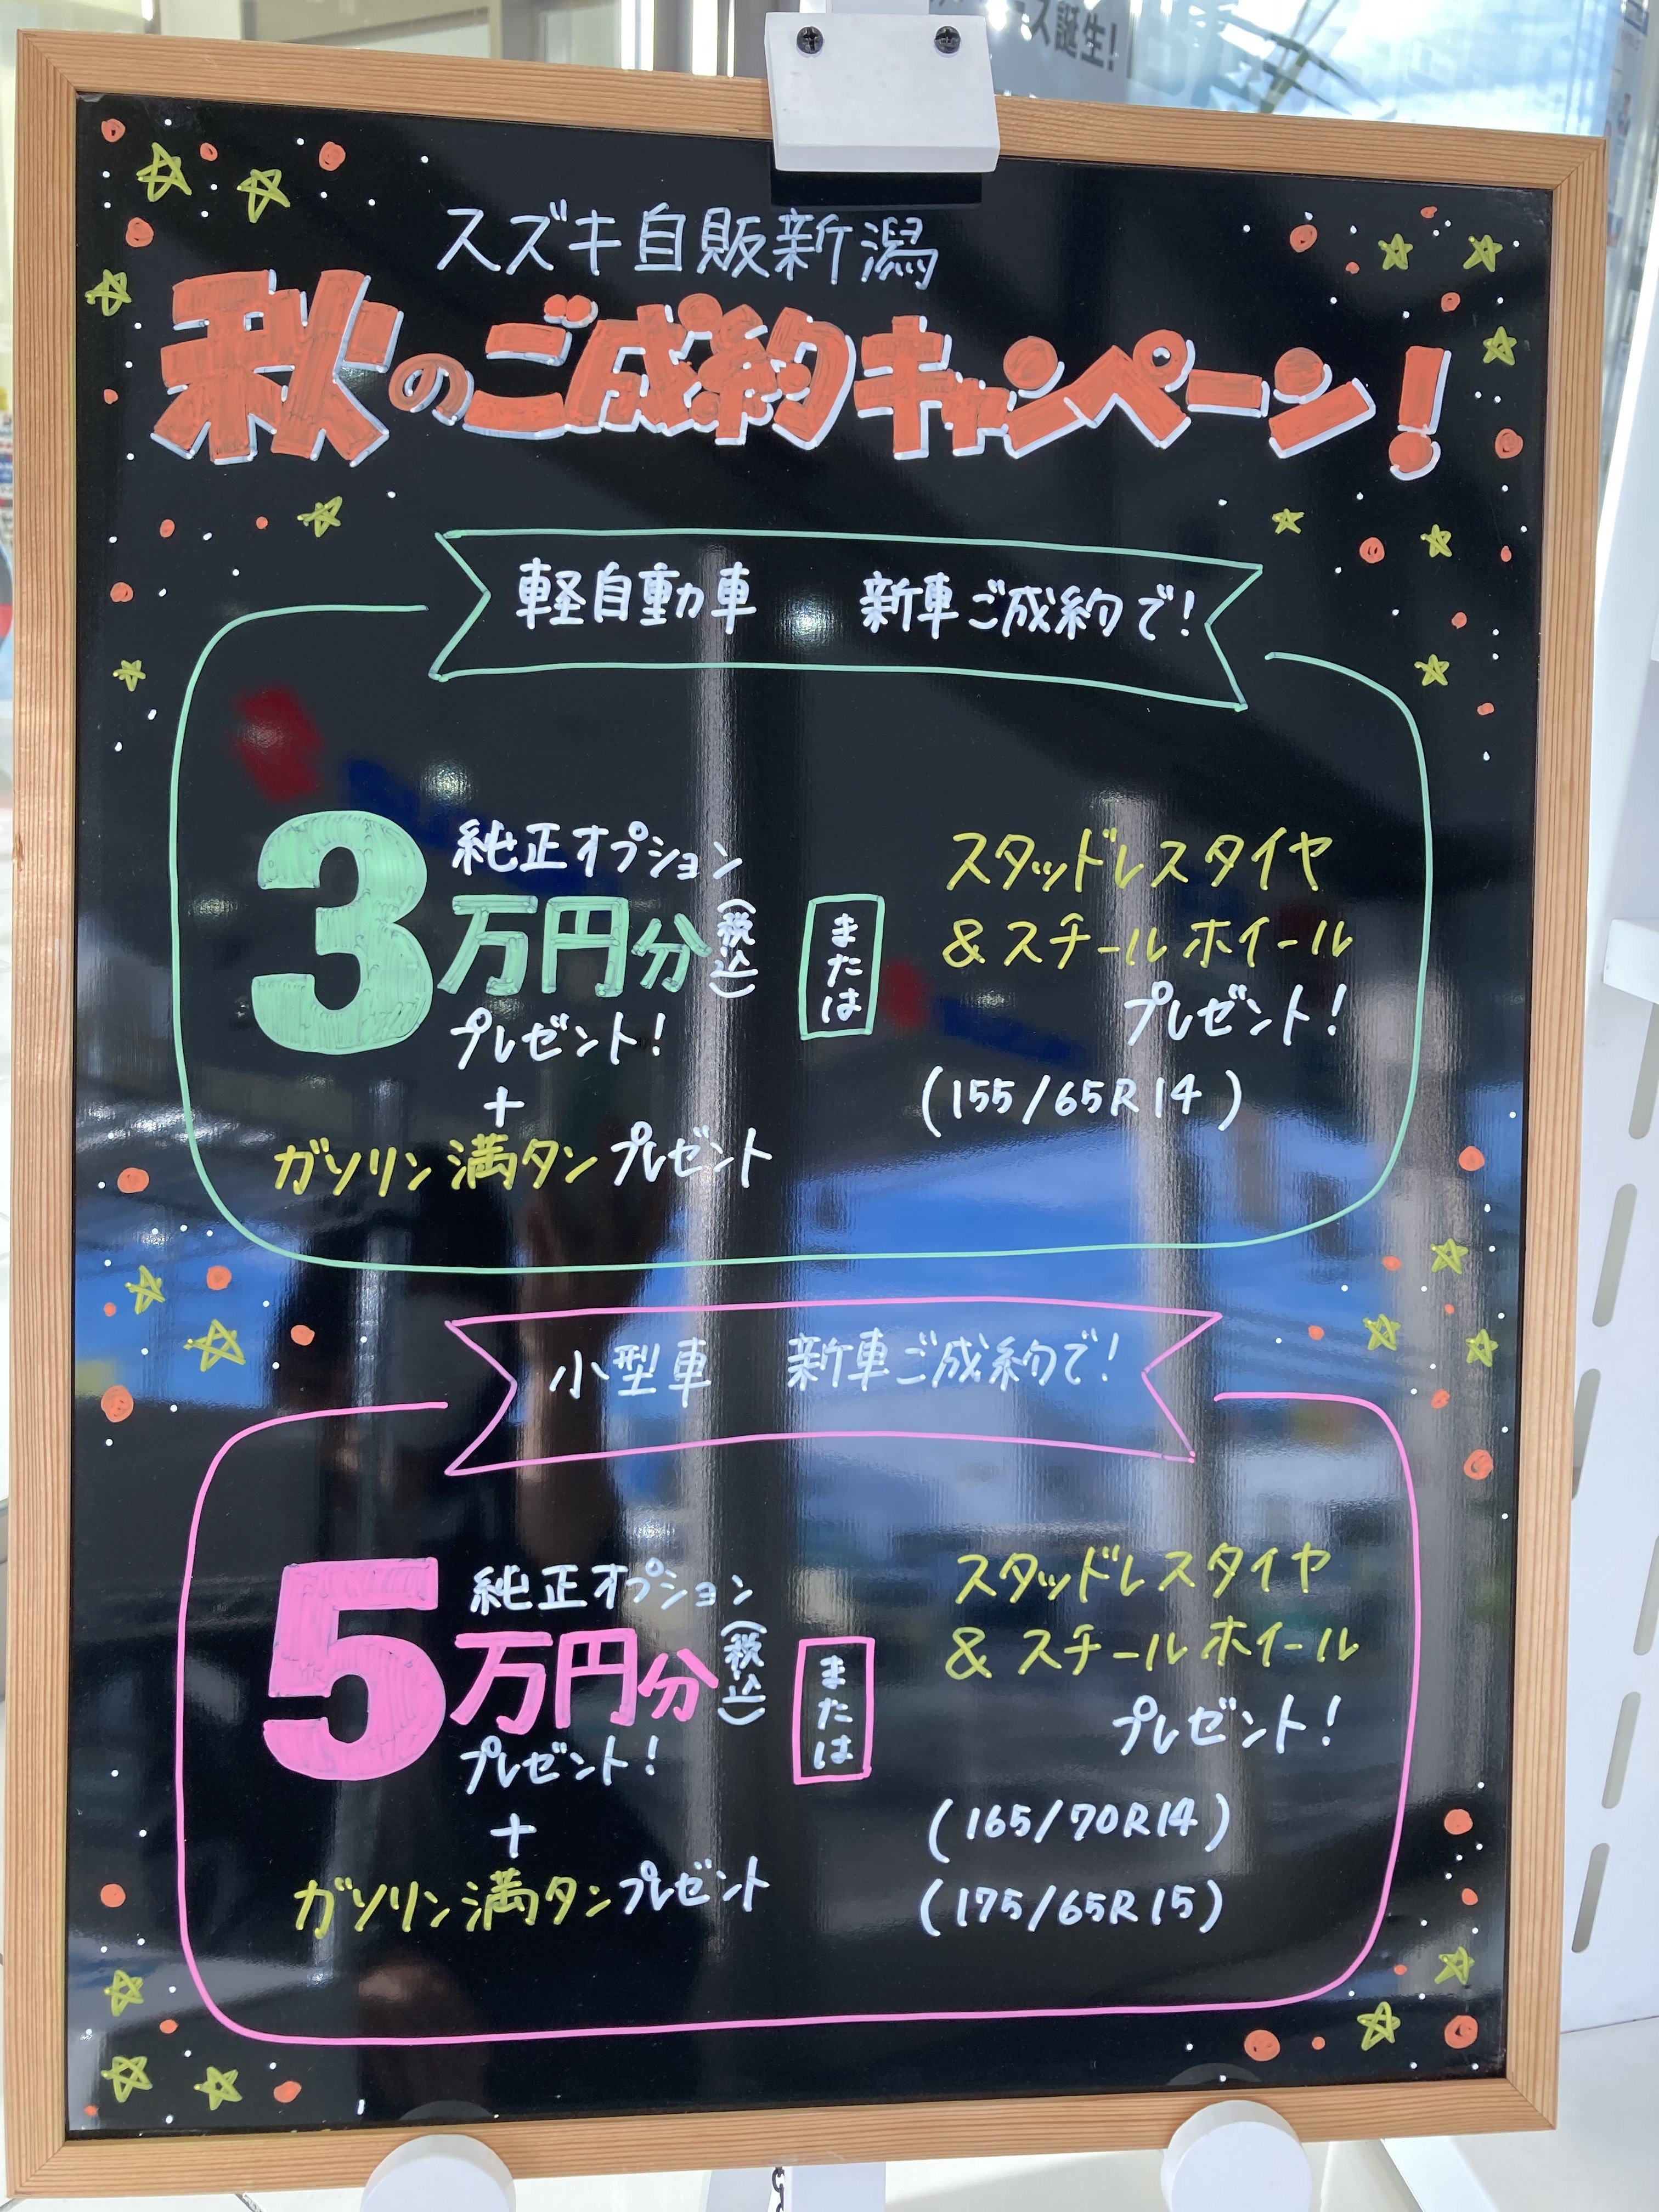 ス誕生!
スズキ自販新潟
秋のご成約キャンペーン!
軽自動車 新車ご成約で!
純正オプション
3万円分(税込)
プレゼント!
+
ガソリン満タンプレゼント
または
スタッドレスタイヤ
&スチールホイール
プレゼント!
(155/65R14)
小型車 新車ご成約で!
純正オプション
5万円分(税込)
プレゼント!
+
ガソリン満タンプレゼント
または
スタッドレスタイヤ
&スチールホイール
プレゼント!
(165/70R14)
(175/65R15)